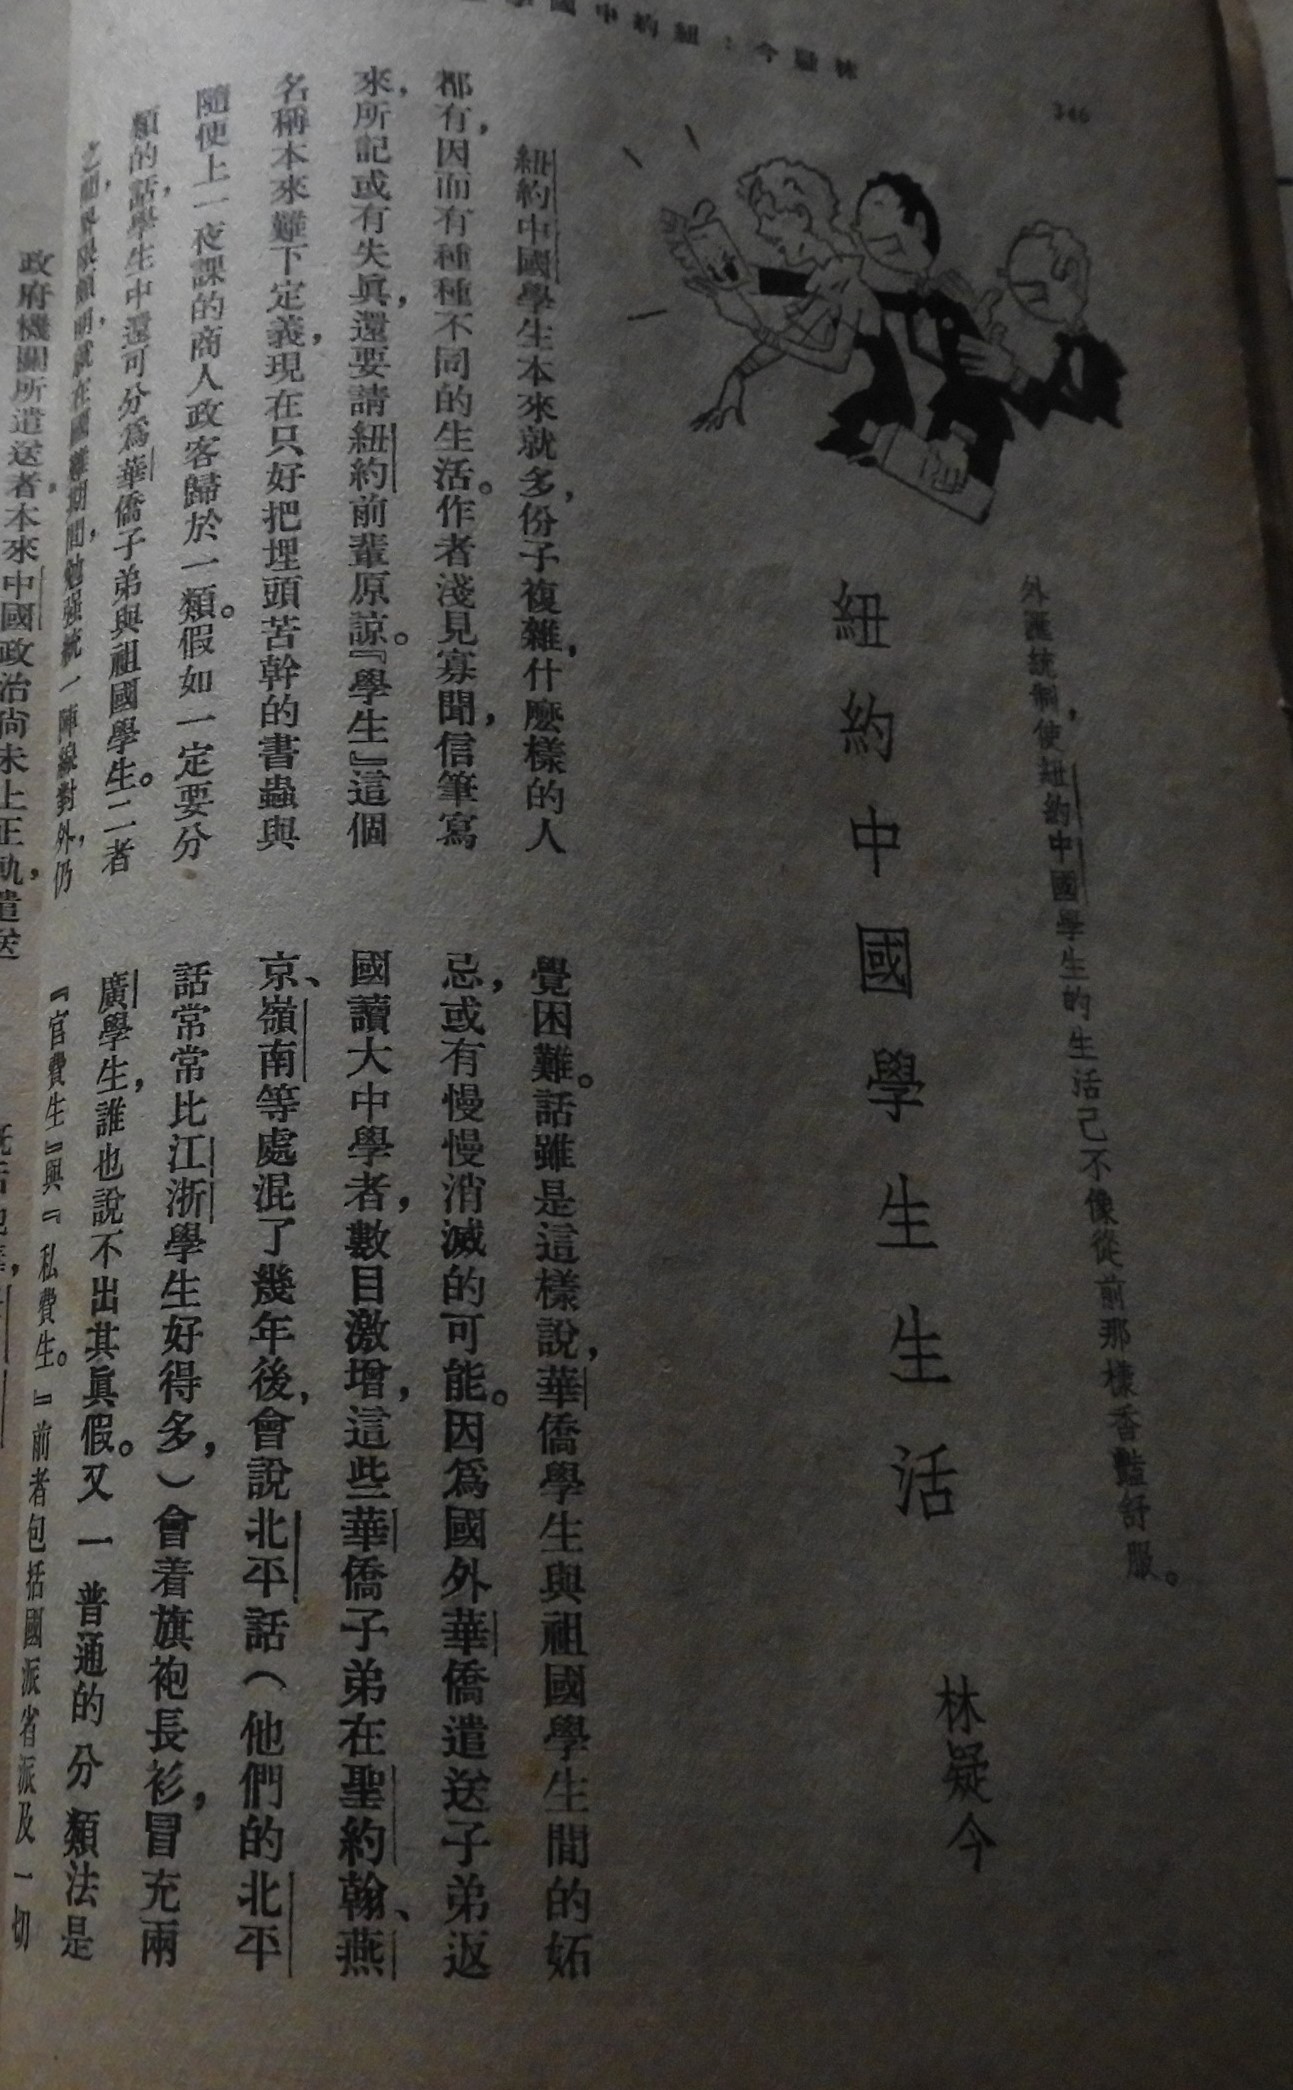 林疑今:紐約中國學生
346
外匯統制,使紐約中國學生的生活已不像從前那樣香豔舒服。
紐約中國學生生活
林疑今
紐約中國學生本來就多,份子複雜,什麽樣的人
都有,因而有種種不同的生活。作者淺見寡聞,信筆寫
來,所記或有失眞,還要請紐約前輩原諒。『學生』這個
名稱本來難下定義,現在只好把埋頭苦幹的書蟲與
隨便上一夜課的商人政客歸於一類。假如一定要分
類的話,學生中還可分爲華僑子弟與祖國學生。二者
之間,界限頗明,就在國難期間,勉强統一陣線對外,仍
覺困難。話雖是這樣說,華僑學生與祖國學生間的妬
忌,或有慢慢消滅的可能。因爲國外華僑遣送子弟返
國讀大中學者,數目激增,這些華僑子弟在聖約翰、燕
京、嶺南等處混了幾年後,會說北平話(他們的北平
話常常比江浙學生好得多,)會着旗袍長衫,冒充兩
廣學生,誰也說不出其眞假。又一普通的分類法是
『官費生』與『私費生。』前者包括國派省派及一切
政府機關所遣送者,本來中國政治尙未上正軌,遣送